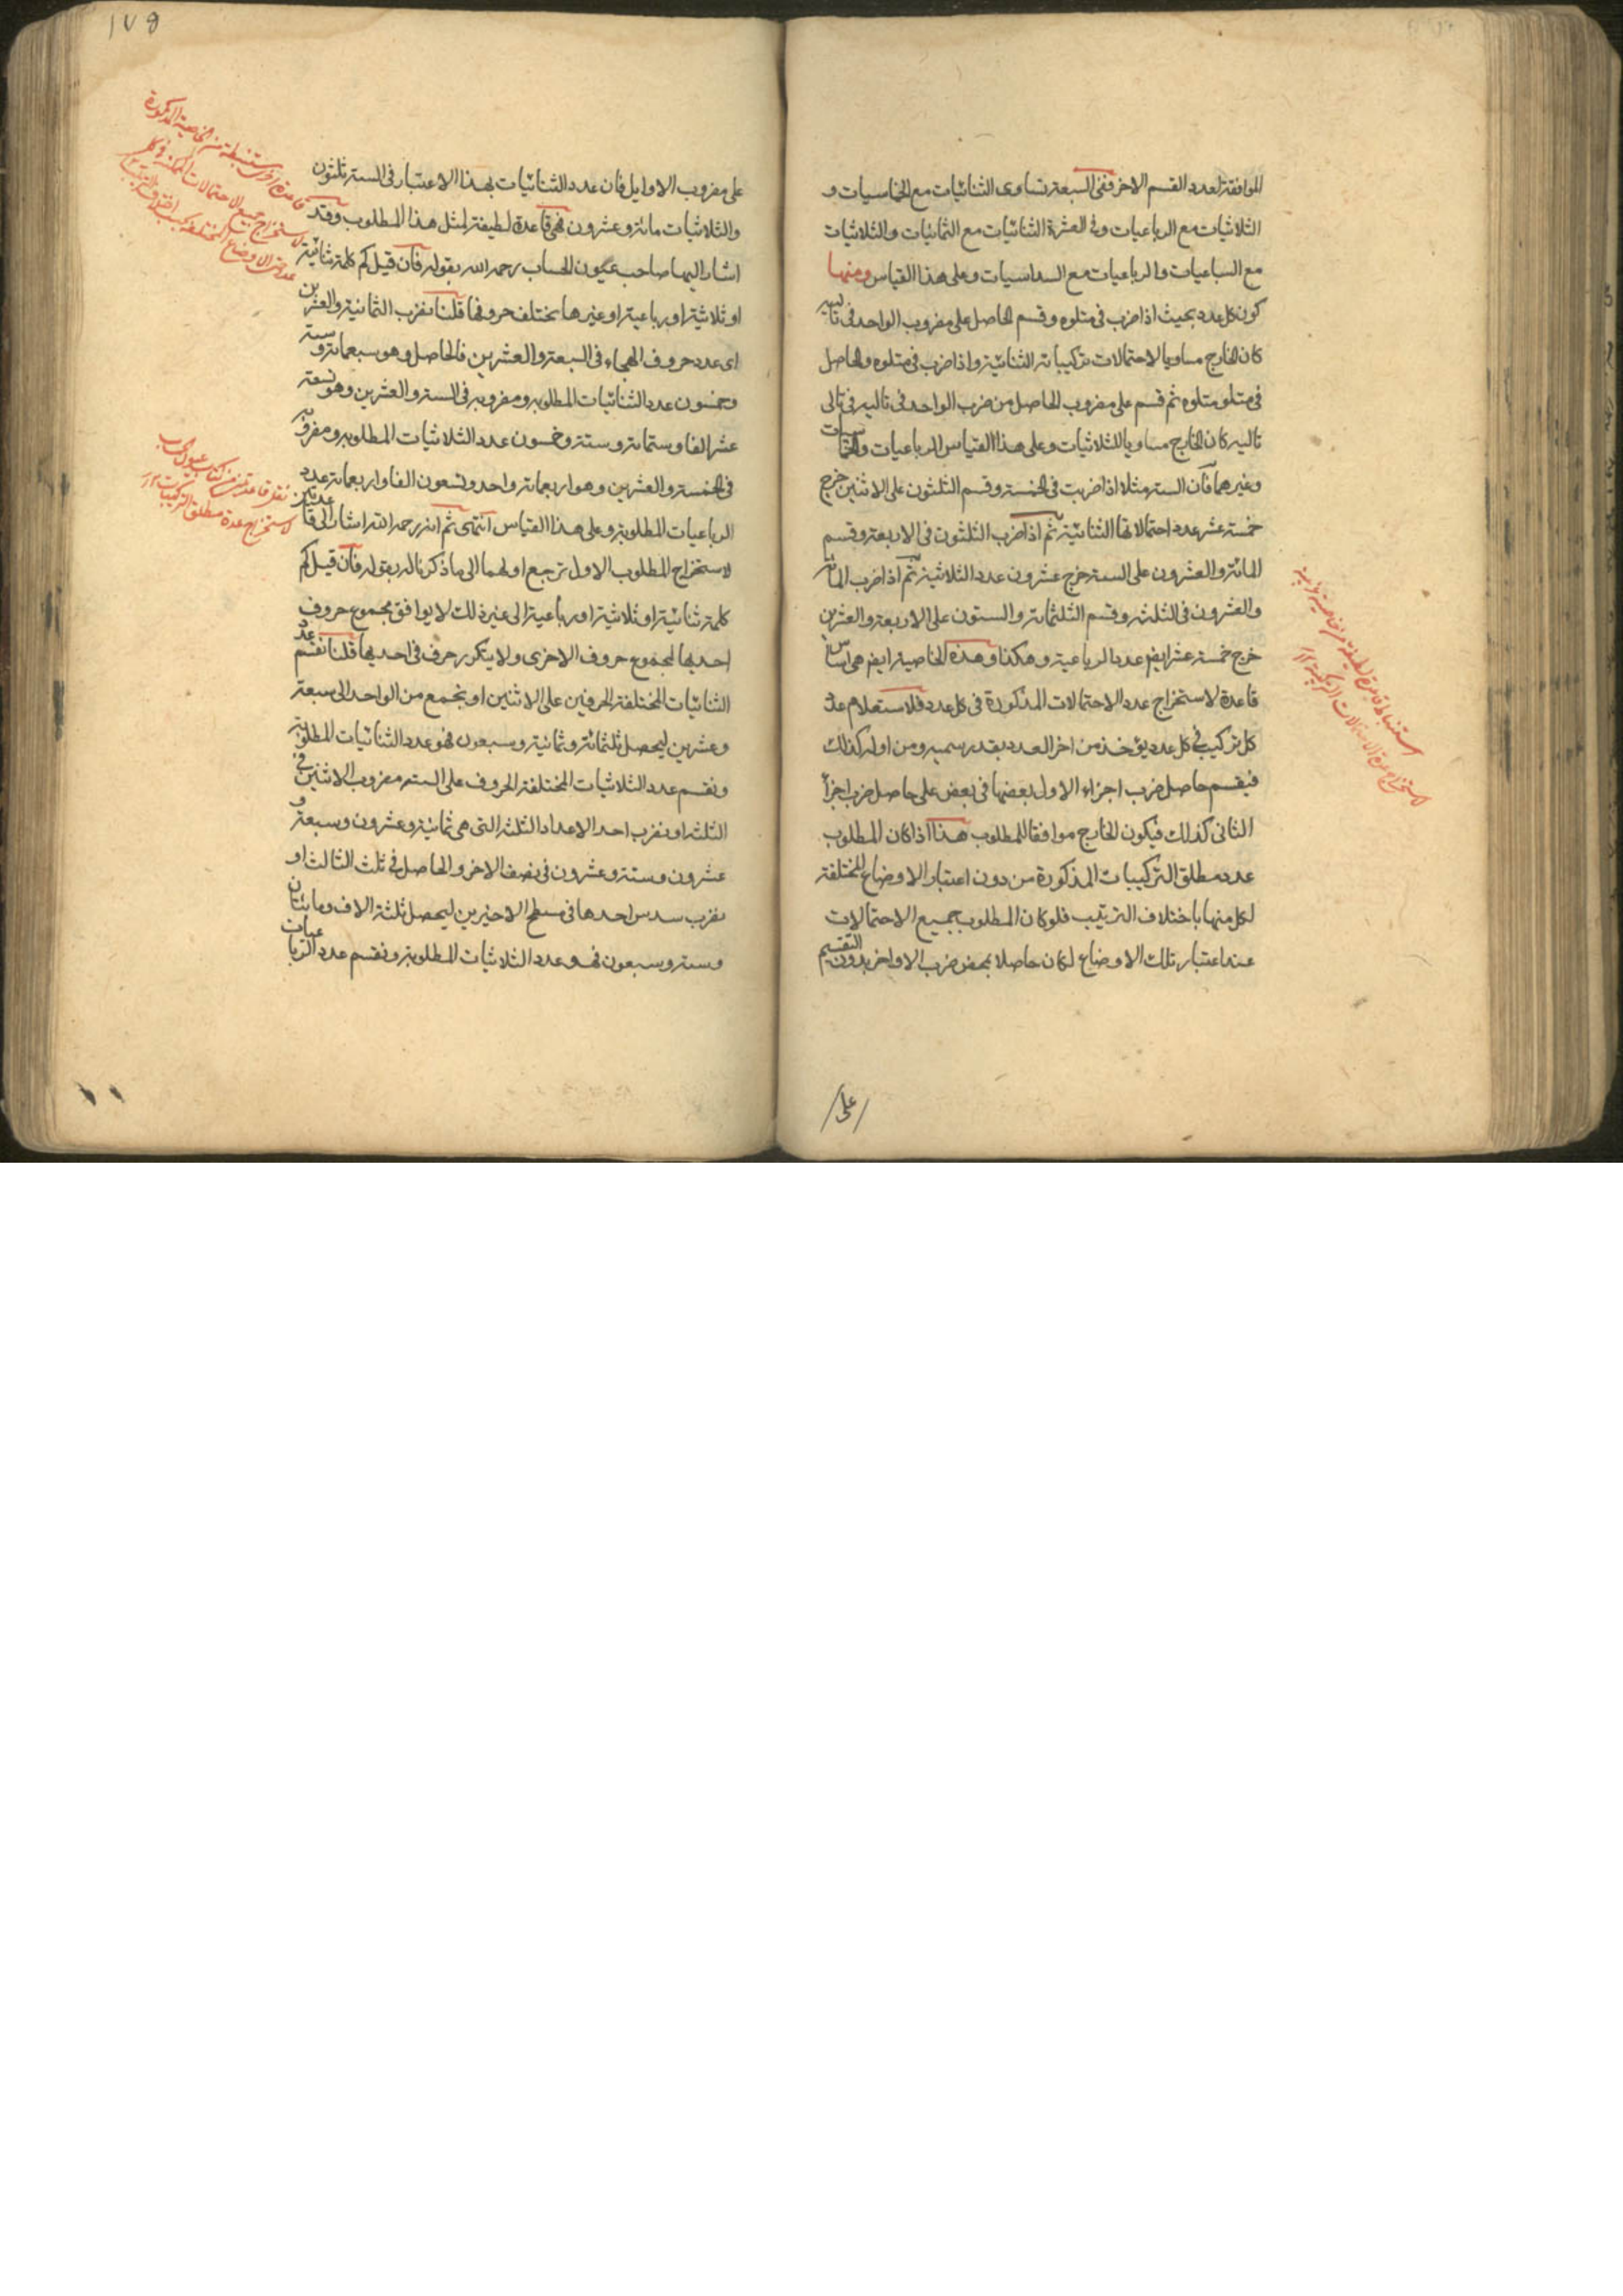 الموافقة لعدد القسم الاخر ففى السبعة تساوى الثنائيات مع الخماسيات و
الثلاثيات مع الرباعيات وفى العشرة الثنائيات مع الثمانيات والثلاثيات
مع السباعيات والرباعيات مع السداسيات وعلى هذا القياس ومنها
كون كل عدد بحيث اذا ضرب فى متلوه وقسم الحاصل على مضروب الواحد فى تاليه
كان الخارج مساويا لاحتمالات تركيباته الثنائية واذا ضرب فى متلوه والحاصل
فى متلو متلوه ثم قسم على مضروب الحاصل من ضرب الواحد فى تاليه فى تالى
تاليه كان الخارج مساويا للثلاثيات وعلى هذا القياس الرباعيات والخماسيات
وغيرهما فان الستة مثلا اذا ضربت فى الخمسة وقسم الثلثون على الاثنين خرج
خمسة عشر عدد احتمالاتها الثنائية ثم اذا ضرب الثلثون فى الاربعة وقسم
المائة والعشرون على الستة خرج عشرون عدد الثلاثية ثم اذا ضرب المائة
والعشرون فى الثلثة وقسم الثلثمائة والستون على الاربعة والعشرين
خرج خمسة عشر ايضا عدد الرباعية وهكذا وهذه الخاصية ايضا هى اساس
قاعدة لاستخراج عدد الاحتمالات المذكورة فى كل عدد فلاستعلام عدة
كل تركيب فى كل عدد يؤخذ من اخر العدد بقدر سميه ومن اوله كذلك
فيقسم حاصل ضرب اجزاء الاول بعضها فى بعض على حاصل ضرب اجزأ
الثانى كذلك فيكون الخارج موافقا للمطلوب هذا اذا كان المطلوب
عدد مطلق التركيبات المذكورة من دون اعتبار الاوضاع المختلفة
لكل منها باختلاف الترتيب فلو كان المطلوب جميع الاحتمالات
عند اعتبار تلك الاوضاع لكان حاصلا بمحض ضرب الاواخر بدون التقسيم
على
١٧٥
على مضروب الاوايل فان عدد الثنائيات بهذا الاعتبار فى الستة ثلثون
والثلاثيات مائة وعشرون فهى قاعدة لطيفة لمثل هذا المطلوب وقد
اشار اليها صاحب عيون الحساب رحمه الله بقوله فان قيل كم كلمة ثنائية
او ثلاثية او رباعية او غيرها يختلف حروفها قلنا نضرب الثمانية والعشرين
اى عدد حروف الهجاء فى السبعة والعشرين فالحاصل وهو سبعمائة وستة
وخمسون عدد الثنائيات المطلوبة ومضروبه فى الستة والعشرين وهو تسعة
عشر الفا وستمائة وستة وخمسون عدد الثلاثيات المطلوبة ومضروبه
فى الخمسة والعشرين وهو اربعمائة واحد وتسعون الفا واربعمائة عدد
الرباعيات المطلوبة وعلى هذا القياس انتهى ثم انه رحمه الله اشار الى قاعدتين
لاستخراج المطلوب الاول ترجع اولهما الى ما ذكرناه بقوله فان قيل كم
كلمة ثنائية او ثلاثية او رباعية الى غير ذلك لا يوافق مجموع حروف
احديها لمجموع حروف الاخرى ولا يتكرر حرف فى احديها قلنا نقسم عدد
الثنائيات المختلفة الحرفين على الاثنين او نجمع من الواحد الى سبعة
وعشرين ليحصل ثلثمائة وثمانية وسبعون فهو عدد الثنائيات المطلوبة
ونقسم عدد الثلاثيات المختلفة الحروف على الستة مضروب الاثنين فى
الثلثة او نضرب احد الاعداد الثلثة التى هى ثمانية وعشرون وسبعة و
عشرون وستة وعشرون فى نصف الاخر والحاصل فى ثلث الثالث او
نضرب سدس احدها فى مسطح الاخيرين ليحصل ثلثة الاف ومائتان
وستة وسبعون فهو عدد الثلاثيات المطلوبة ونقسم عدد الرباعيات
نقل قاعدتين من كتاب عيون الحساب
لاستخراج عدة مطلق التركيبات